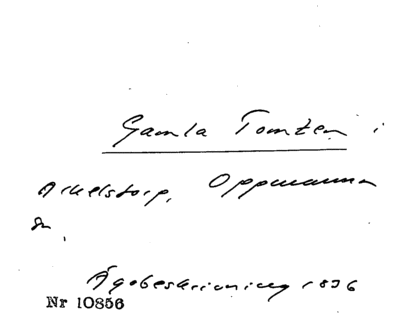 Gamla Tomten i
Arkelstorp, Oppmanna
sn.
Ägobeskrivning 1836
Nr 10856